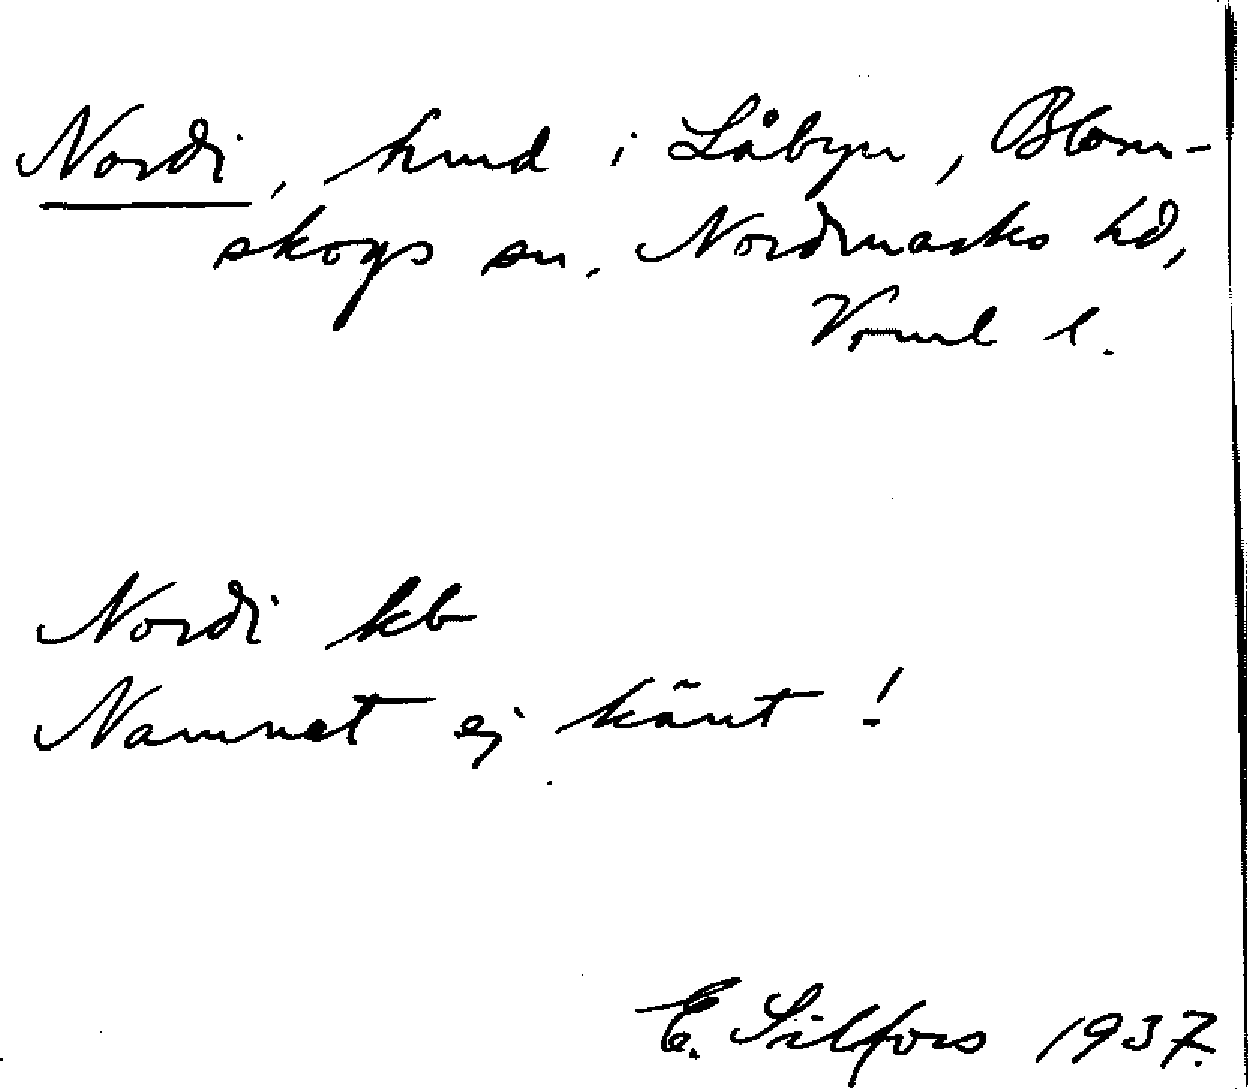 Nordi, hmd i Låbyn, Blom-
skogs sn, Nordmarks hd,
Vrml l.
Nordi kb
Namnet ej känt!
E. Silfors 1937.